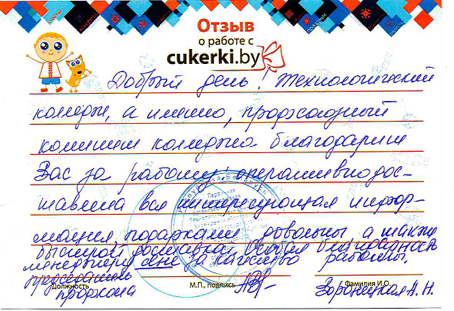 Отзыв
о работе с
cukerki.by
Добрый день! Технологический
колледж, а именно, профсоюзный
комитет колледжа благодарит
Вас за работу: оперативно дос-
тавлена вся интересующая инфор-
мация, подарками довольны, а также
быстрой доставкой. Особая благодарность
менеджеру за качество работы.
председатель
профкома
Должность
М.П., подпись
Фамилия И.О.
Н.